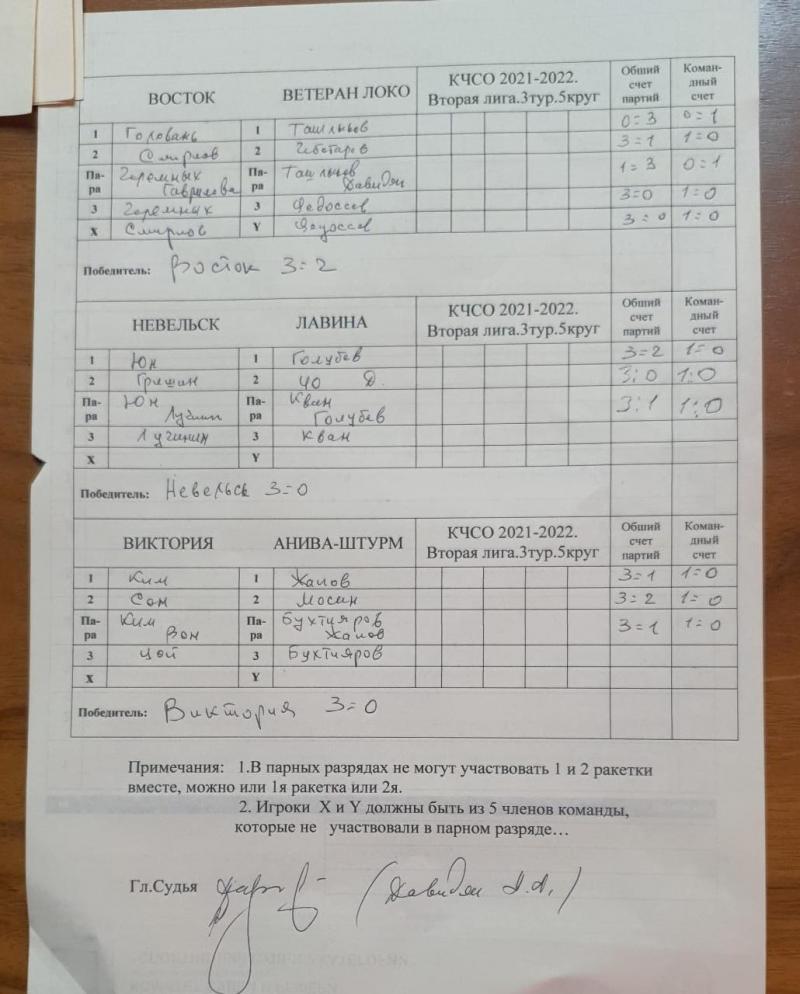 ВОСТОК ВЕТЕРАН ЛОКО КЧСО 2021-2022. Вторая лига.3тур.5круг Общий счет партий Коман-дный счет
1 Головань 1 Ташлыков 0=3 0=1
2 Смирнов 2 Чеботарев 3=1 1=0
Па-ра Черемных Гаврилова Па-ра Ташлыков Давидян 1=3 0=1
3 Черемных 3 Федоссев 3=0 1=0
X Смирнов Y Федоссев 3=0 1=0
Победитель: Восток 3=2
НЕВЕЛЬСК ЛАВИНА КЧСО 2021-2022. Вторая лига.3тур.5круг Общий счет партий Коман-дный счет
1 Юн 1 Голубев 3=2 1=0
2 Гришин 2 ЧО Д. 3:0 1:0
Па-ра Юн Лучин Па-ра Кван Голубев 3:1 1:0
3 Лучинин 3 Кван
X Y
Победитель: Невельск 3=0
ВИКТОРИЯ АНИВА-ШТУРМ КЧСО 2021-2022. Вторая лига.3тур.5круг Общий счет партий Коман-дный счет
1 Ким 1 Жалов 3=1 1=0
2 Сон 2 Мосин 3=2 1=0
Па-ра Ким Вон Па-ра Бухтияров Жалов 3=1 1=0
3 Цой 3 Бухтияров
X Y
Победитель: Виктория 3=0
Примечания: 1.В парных разрядах не могут участвовать 1 и 2 ракетки
вместе, можно или 1я ракетка или 2я.
2. Игроки X и Y должны быть из 5 членов команды,
которые не участвовали в парном разряде…
Гл.Судья (Давидян А.А.)